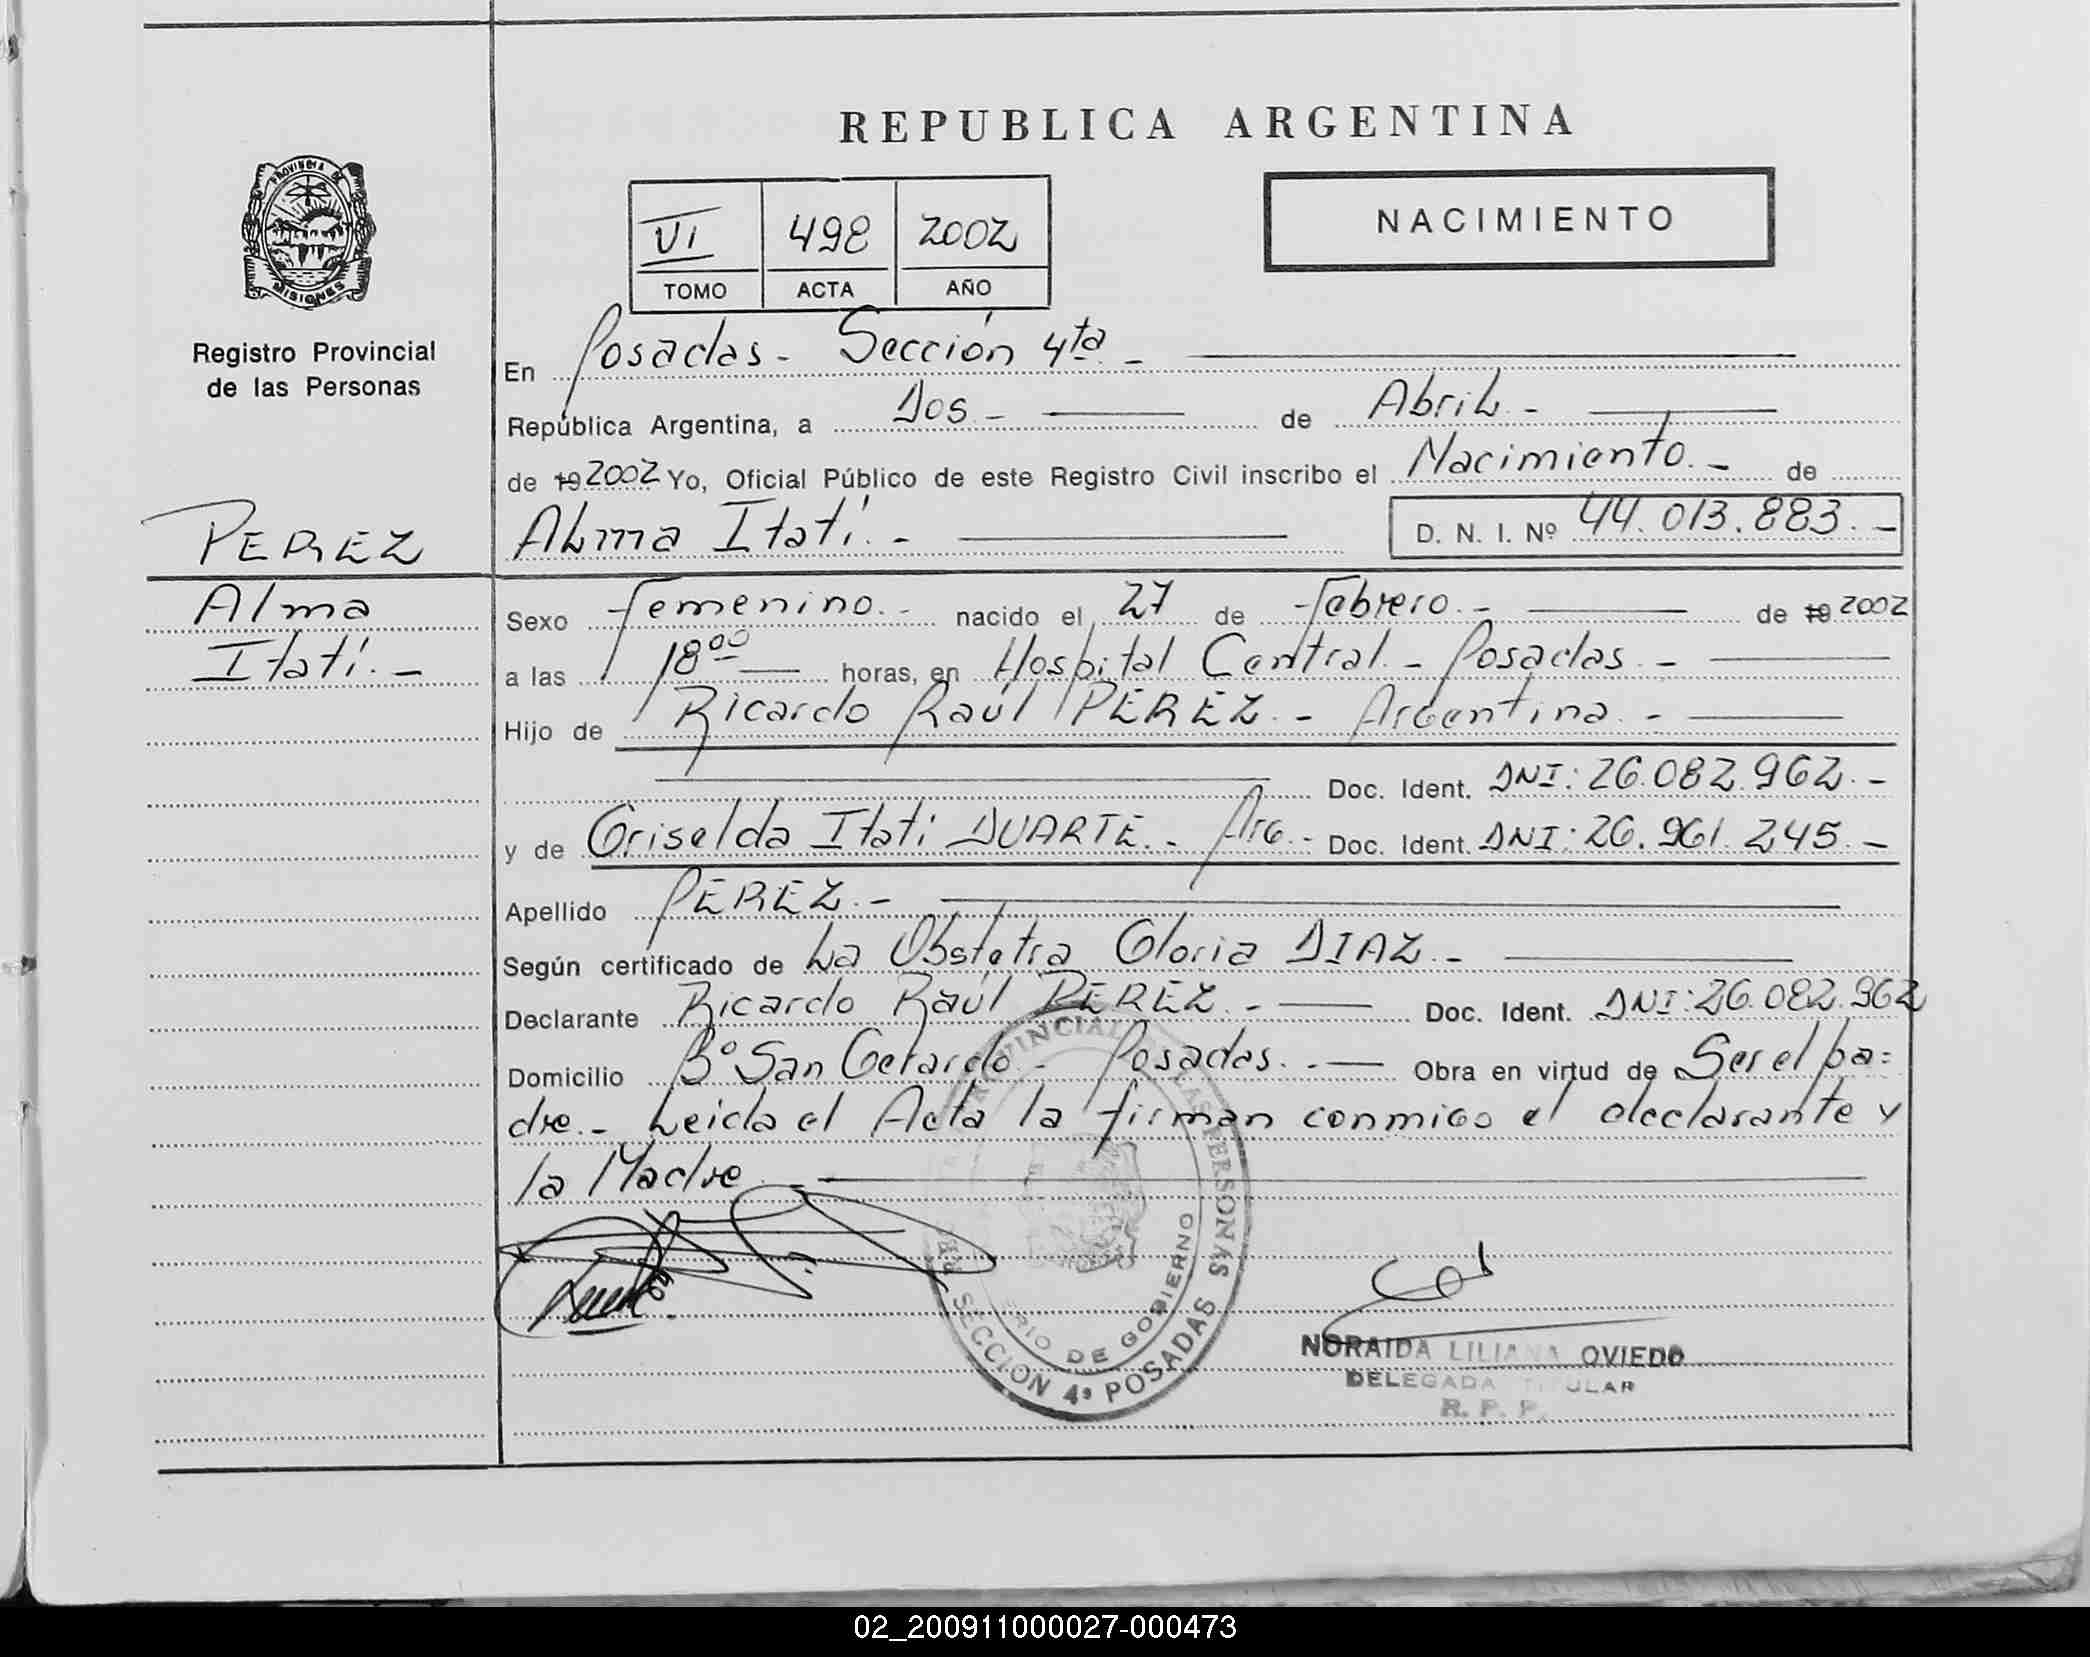 REPUBLICA ARGENTINA
PROVINCIA DE
MISIONES
VI 498 2002
TOMO ACTA AÑO
NACIMIENTO
Registro Provincial
de las Personas
En Posadas - Sección 4ta -
República Argentina, a Dos - de Abril -
de 19 2002 Yo, Oficial Público de este Registro Civil inscribo el Nacimiento. - de
PEREZ
Alma Itatí. - D. N. I. Nº 44.013.883. -
Alma
Itatí. -
Sexo femenino. - nacido el 27 de febrero. - de 19 2002
a las 18⁰⁰ horas, en Hospital Central. - Posadas. -
Hijo de Ricardo Raúl PEREZ. - Argentina. -
Doc. Ident. DNI: 26.082.962. -
y de Griselda Itatí DUARTE. - Arg. - Doc. Ident. DNI: 26.961.245. -
Apellido PEREZ. -
Según certificado de La Obstetra Gloria DIAZ. -
Declarante Ricardo Raúl PEREZ. - Doc. Ident. DNI: 26.082.962
Domicilio Bº San Gerardo - Posadas. - Obra en virtud de Ser el pa=
dre. - Leida el Acta la firman conmigo el declarante y
la Madre. -
PROVINCIAL DE LAS PERSONAS
SECCION 4ª POSADAS
DE GOBIERNO
NORAIDA LILIANA OVIEDO
DELEGADA TITULAR
R. P. P.
02_200911000027-000473